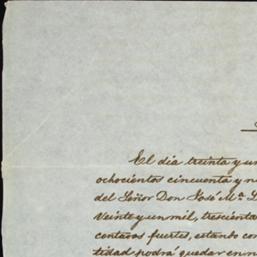 El dia treinta y un
ochocientos cincuenta y n
del Señor Don José Mª L
veinte y un mil, trescienta
contavos fuertes, estando con
tidad podrá quedar en m